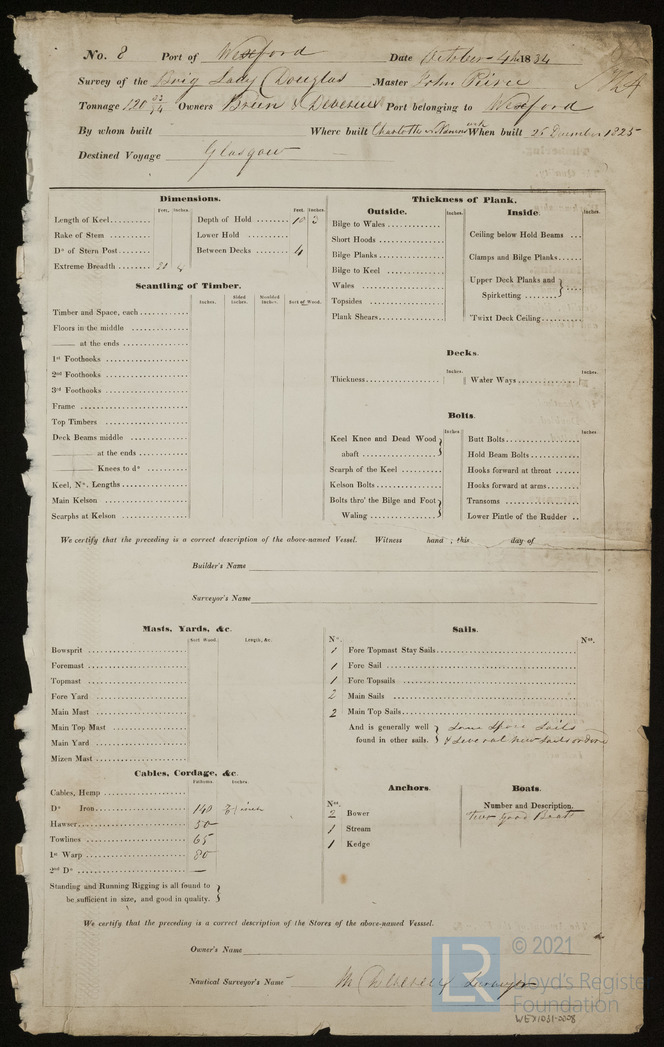 No. 8 Port of Wexford Date October 4th 1834
Survey of the Brig Lady Douglas Master John
Tonnage 120 Owners Brien & Devereux Port belonging to Wexford
By whom built Where built Charlotte When built 26 December 1825
Destined Voyage Glasgow
Dimensions.
Feet. Inches. Feet. Inches.
Length of Keel Depth of Hold 10 3
Rake of Stem Lower Hold
Do of Stern Post Between Decks 4
Extreme Breadth 21 4
Scantling of Timber.
Inches. Sided Inches. Moulded Inches. Sort of Wood.
Timber and Space, each
Floors in the middle
—— at the ends
1st Foothooks
2nd Foothooks
3rd Foothooks
Frame
Top Timbers
Deck Beams middle
—— at the ends
—— Knees to do
Keel, No. Lengths
Main Kelson
Scarphs at Kelson
Thickness of Plank.
Outside. Inches. Inside. Inches.
Bilge to Wales
Short Hoods
Bilge Planks
Bilge to Keel
Wales
Topsides
Plank Shears
Ceiling below Hold Beams
Clamps and Bilge Planks
Upper Deck Planks and
Spirketting
'Twixt Deck Ceiling
Decks.
Inches. Inches.
Thickness Water Ways
Bolts.
Inches Inches
Keel Knee and Dead Wood
abaft
Scarph of the Keel
Kelson Bolts
Bolts thro' the Bilge and Foot
Waling
Butt Bolts
Hold Beam Bolts
Hooks forward at throat
Hooks forward at arms
Transoms
Lower Pintle of the Rudder
We certify that the preceding is a correct description of the above-named Vessel. Witness hand ; this day of
Builder's Name
Surveyor's Name
Masts, Yards, &c.
Sort Wood. Length, &c.
Bowsprit
Foremast
Topmast
Fore Yard
Main Mast
Main Top Mast
Main Yard
Mizen Mast
Sails.
No. Nos.
1 Fore Topmast Stay Sails
1 Fore Sail
1 Fore Topsails
2 Main Sails
2 Main Top Sails
And is generally well Some Spare Sails
found in other sails. & Several new Sails
Cables, Cordage, &c.
Fathoms. Inches.
Cables, Hemp
Do Iron 140
Hawser 50
Towlines 65
1st Warp 80
2nd Do —
Standing and Running Rigging is all found to
be sufficient in size, and good in quality.
Anchors.
Nos.
2 Bower
1 Stream
1 Kedge
Boats.
Number and Description.
Two good Boats
We certify that the preceding is a correct description of the Stores of the above-named Vesssel.
Owner's Name
Nautical Surveyor's Name M Surveyor
LR
© 2021
Lloyd's Register
Foundation
WEX1031-0008